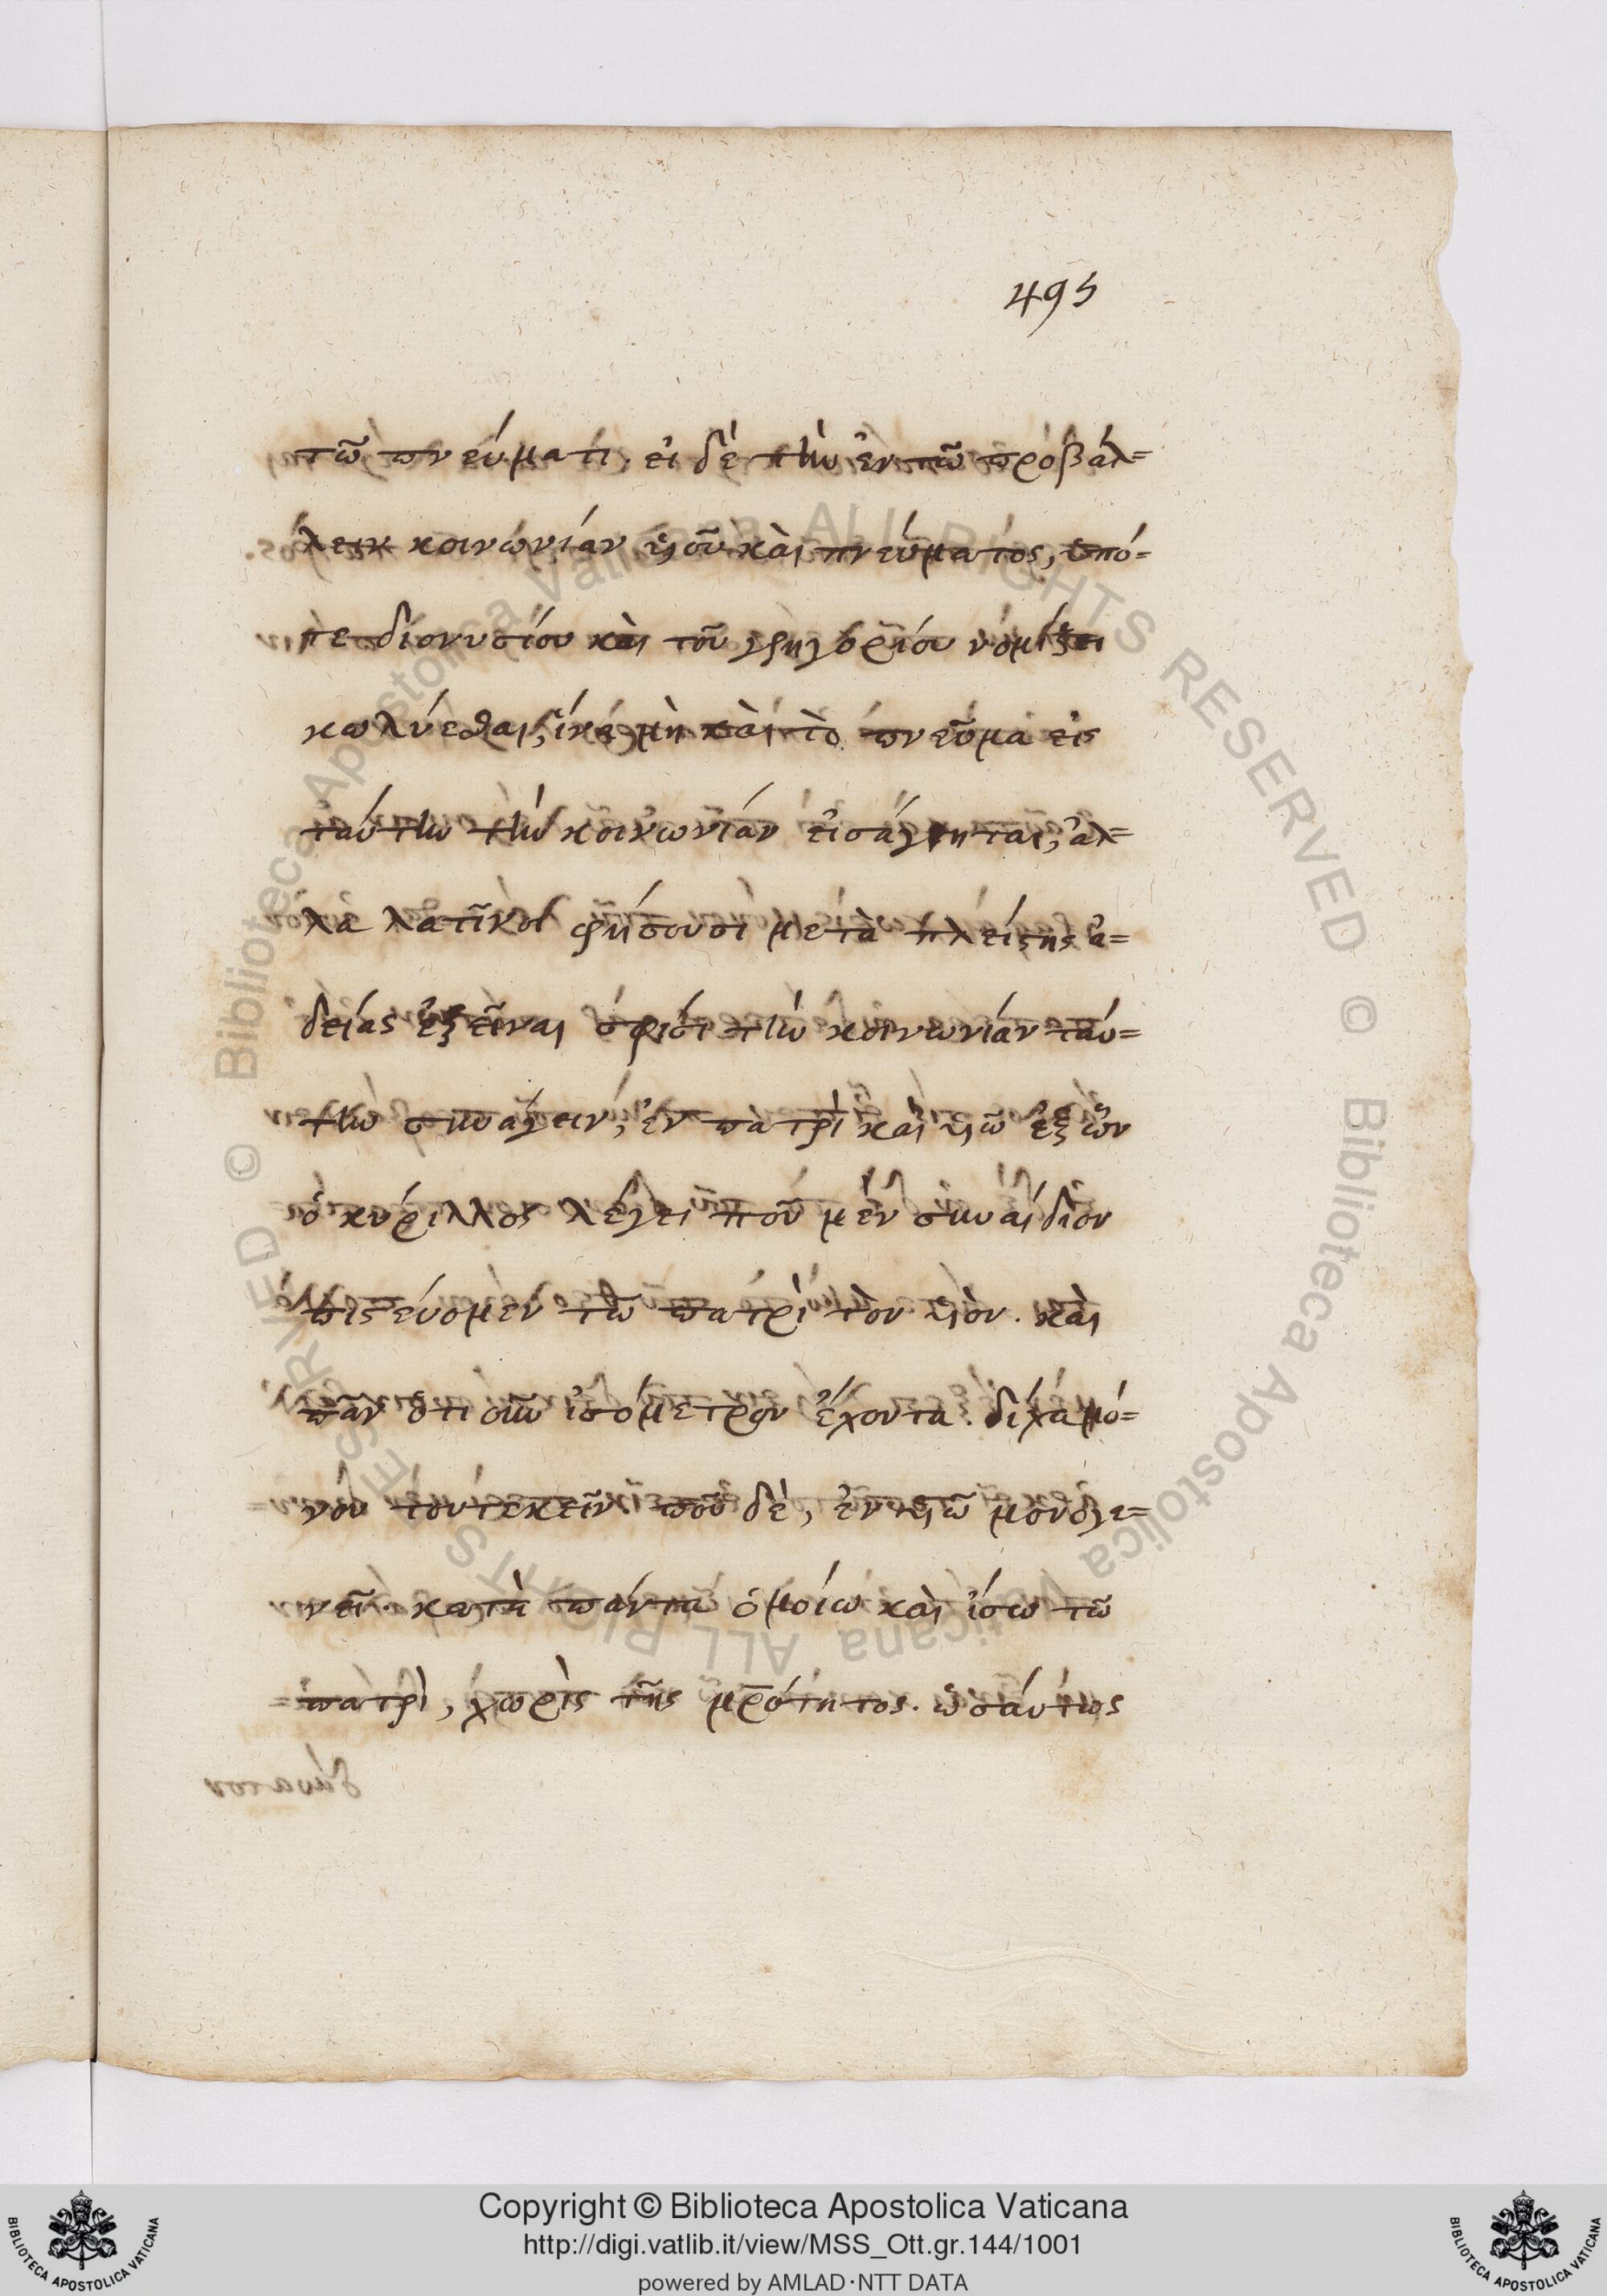 495
τῶ πνεύματι, εἰ δὲ τὴν ἐν τῶ προβάλ=
λειν κοινωνίαν ὑιοῦ καὶ πνεύματος, ὑπό=
τε διονυσίου καὶ τοῦ γρηγορίου νομίζει
κωλύεσθαι, ἵνα μὴ καὶ τὸ πνεῦμα εἰς
ταύτην τὴν κοινωνίαν εἰσάγηται, ἀλ=
λὰ λατῖνοι φήσουσι μετὰ πλείστης ἀ=
δείας ἐξεῖναι σφίσι τὴν κοινωνίαν ταύ=
την συνάγειν, ἐν πατρὶ καὶ ὑιῶ ἐξ ὧν
ὁ κύριλλος λέγει ποῦ μὲν συναίδιον
πιστεύομεν τῶ πατρὶ τὸν ὑιόν. καὶ
πᾶν ὁτιοῦν ἰσόμετρον ἔχοντα. δίχα μό=
νου τοῦ τεκεῖν. ποῦ δὲ, ἐν ὑιῶ μονογε=
νεῖ κατὰ πάντα ὁμοίω καὶ ἴσω τῶ
πατρὶ, χωρὶς τῆς πρότητος. ὡσαύτως
Copyright © Biblioteca Apostolica Vaticana
http://digi.vatlib.it/view/MSS_Ott.gr.144/1001
powered by AMLAD·NTT DATA
BIBLIOTECA APOSTOLICA VATICANA
BIBLIOTECA APOSTOLICA VATICANA
© Biblioteca Apostolica Vaticana ALL RIGHTS RESERVED
© Biblioteca Apostolica Vaticana ALL RIGHTS RESERVED